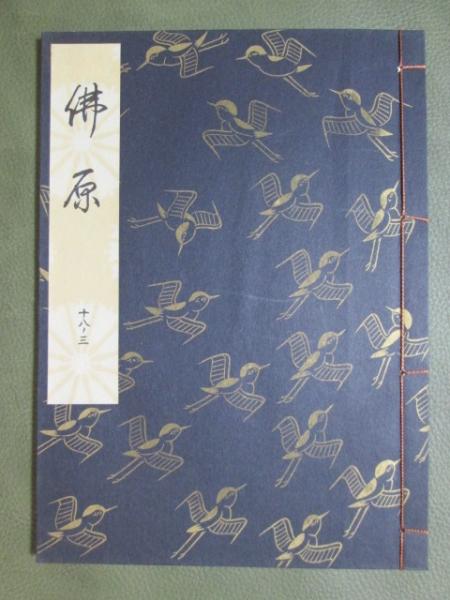 佛原
十八ノ三